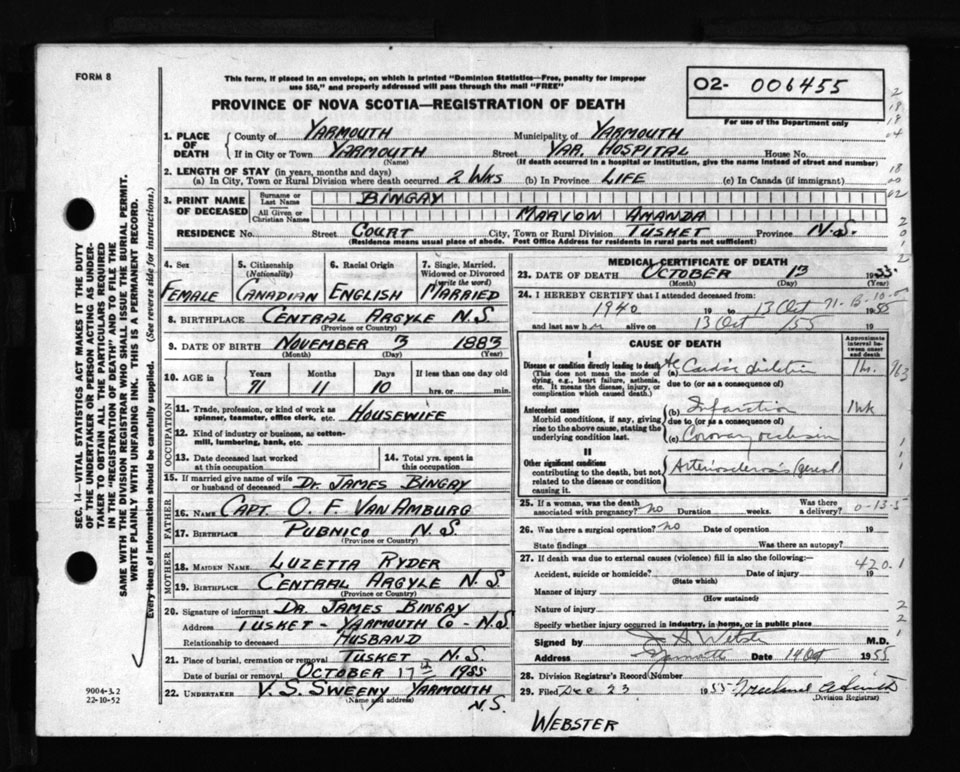 FORM 8
This form, if placed in an envelope, on which is printed "Dominion Statistics—Free, penalty for improper
use $50," and properly addressed will pass through the mail "FREE"
O2- 006455
For use of the Department only
PROVINCE OF NOVA SCOTIA—REGISTRATION OF DEATH
1. PLACE OF DEATH
County of YARMOUTH Municipality of YARMOUTH
If in City or Town YARMOUTH Street YAR. HOSPITAL House No.
(Name) (If death occurred in a hospital or institution, give the name instead of street and number)
2. LENGTH OF STAY (in years, months and days)
(a) In City, Town or Rural Division where death occurred 2 WKS (b) In Province LIFE (c) In Canada (if immigrant)
3. PRINT NAME OF DECEASED
Surname or Last Name BINGAY
All Given or Christian Names MARION AMANDA
RESIDENCE No. Street COURT City, Town or Rural Division TUSKET Province N.S.
(Residence means usual place of abode. Post Office Address for residents in rural parts not sufficient)
4. Sex FEMALE
5. Citizenship (Nationality) CANADIAN
6. Racial Origin ENGLISH
7. Single, Married, Widowed or Divorced (write the word) MARRIED
8. BIRTHPLACE CENTRAL ARGYLE N.S
(Province or Country)
9. DATE OF BIRTH NOVEMBER 3 1883
(Month) (Day) (Year)
10. AGE in Years Months Days If less than one day old
71 11 10 hrs. or min.
OCCUPATION
11. Trade, profession, or kind of work as spinner, teamster, office clerk, etc. HOUSEWIFE
12. Kind of industry or business, as cotton-mill, lumbering, bank, etc.
13. Date deceased last worked at this occupation
14. Total yrs. spent in this occupation
15. If married give name of wife or husband of deceased DR. JAMES BINGAY
FATHER
16. NAME CAPT. O. F. VANAMBURG
17. BIRTHPLACE PUBNICO N.S
(Province or Country)
MOTHER
18. MAIDEN NAME LUZETTA RYDER
19. BIRTHPLACE CENTRAL ARGYLE N.S
(Province or Country)
20. Signature of informant DR. JAMES BINGAY
Address TUSKET - YARMOUTH CO - N.S
Relationship to deceased HUSBAND
21. Place of burial, cremation or removal TUSKET N.S.
Date of burial or removal OCTOBER 17th 1955
22. UNDERTAKER V. S. SWEENY YARMOUTH
(Name and address) N.S.
MEDICAL CERTIFICATE OF DEATH
23. DATE OF DEATH OCTOBER 13 1955
(Month) (Day)
24. I HEREBY CERTIFY that I attended deceased from:
1940 19 to 13 Oct 1955
and last saw h alive on 13 Oct /55 19
CAUSE OF DEATH
Approximate interval between onset and death
I
Disease or condition directly leading to death
(This does not mean the mode of dying, e.g., heart failure, asthenia, etc. It means the disease, injury, or complication which caused death.)
(a) Ac Cardiac dilatation 1 hr.
due to (or as a consequence of)
Antecedent causes
Morbid conditions, if any, giving rise to the above cause, stating the underlying condition last.
(b) Infarction 1 wk
due to (or as a consequence of)
(c) Coronary occlusion
II
Other significant conditions
contributing to the death, but not related to the disease or condition causing it.
Arteriosclerosis General
25. If a woman, was the death associated with pregnancy? No Duration weeks. Was there a delivery?
26. Was there a surgical operation? No Date of operation 19
State findings Was there an autopsy?
27. If death was due to external causes (violence) fill in also the following:—
420.1
Accident, suicide or homicide? Date of injury 19
(State which)
Manner of injury
(How sustained)
Nature of injury
Specify whether injury occurred in industry, in home, or in public place
Signed by Webster M.D.
Address Yarmouth Date 14 Oct 1955
28. Division Registrar's Record Number
29. Filed Dec 23 1955
(Division Registrar)
WEBSTER
SEC. 14—VITAL STATISTICS ACT MAKES IT THE DUTY
OF THE UNDERTAKER OR PERSON ACTING AS UNDER-
TAKER TO OBTAIN ALL THE PARTICULARS REQUIRED
IN THE "REGISTRATION OF DEATH" AND TO FILE THE
SAME WITH THE DIVISION REGISTRAR WHO SHALL ISSUE THE BURIAL PERMIT.
WRITE PLAINLY WITH UNFADING INK. THIS IS A PERMANENT RECORD.
Every item of information should be carefully supplied. (See reverse side for instructions.)
9004-3.2
22-10-52